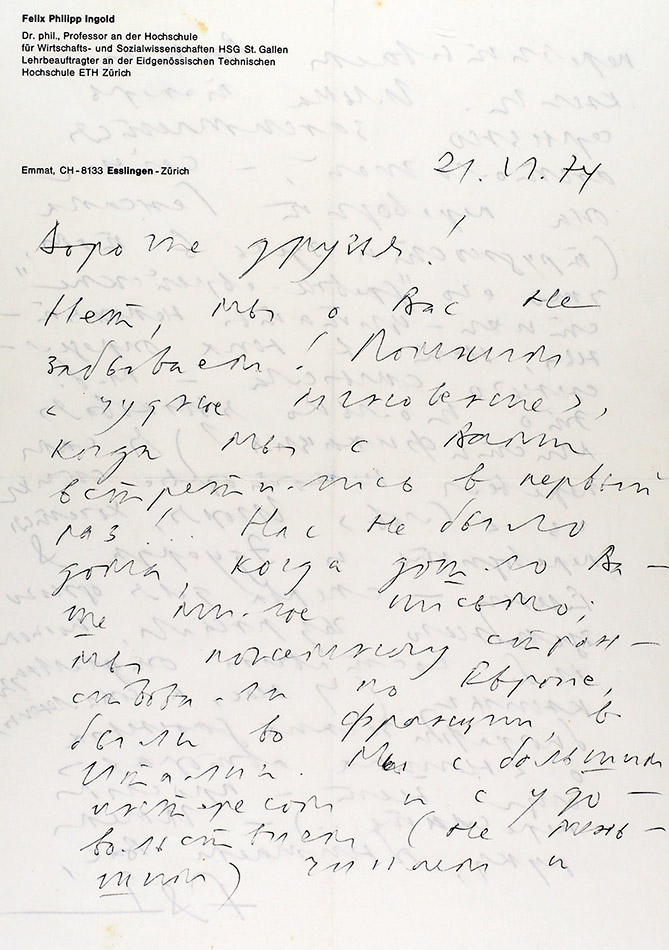 Felix Philipp Ingold
Dr. phil., Professor an der Hochschule
für Wirtschafts- und Sozialwissenschaften HSG St. Gallen
Lehrbeauftragter an der Eidgenössischen Technischen
Hochschule ETH Zürich
Emmat, CH-8133 Esslingen-Zürich
21.VI.74
Дорогие друзья!
Нет, мы о Вас не
забываем! Помним
<чудное мгновение>,
когда мы с Вами
встретились в первый
раз!.. Нас не было
дома, когда дошло Ва-
ше милое письмо;
мы стран-
ствовали по Европе,
были во Франции, в
Италии. Мы с большим
интересом и с удо-
вольствием (не мень-
шим) читаем и